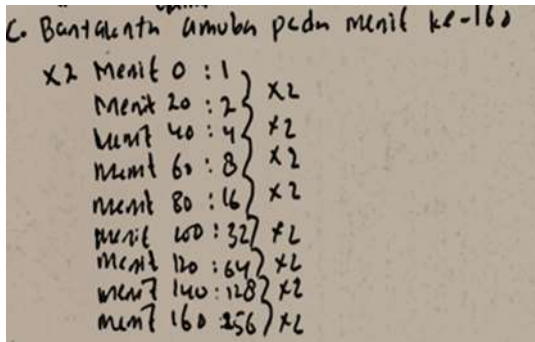 C. Banyaknya amuba pada menit ke-160
x2 Menit 0 : 1
Menit 20 : 2 x2
Menit 40 : 4 x2
Menit 60 : 8 x2
Menit 80 : 16 x2
Menit 100 : 32 x2
Menit 120 : 64 x2
Menit 140 : 128 x2
Menit 160 256 x2